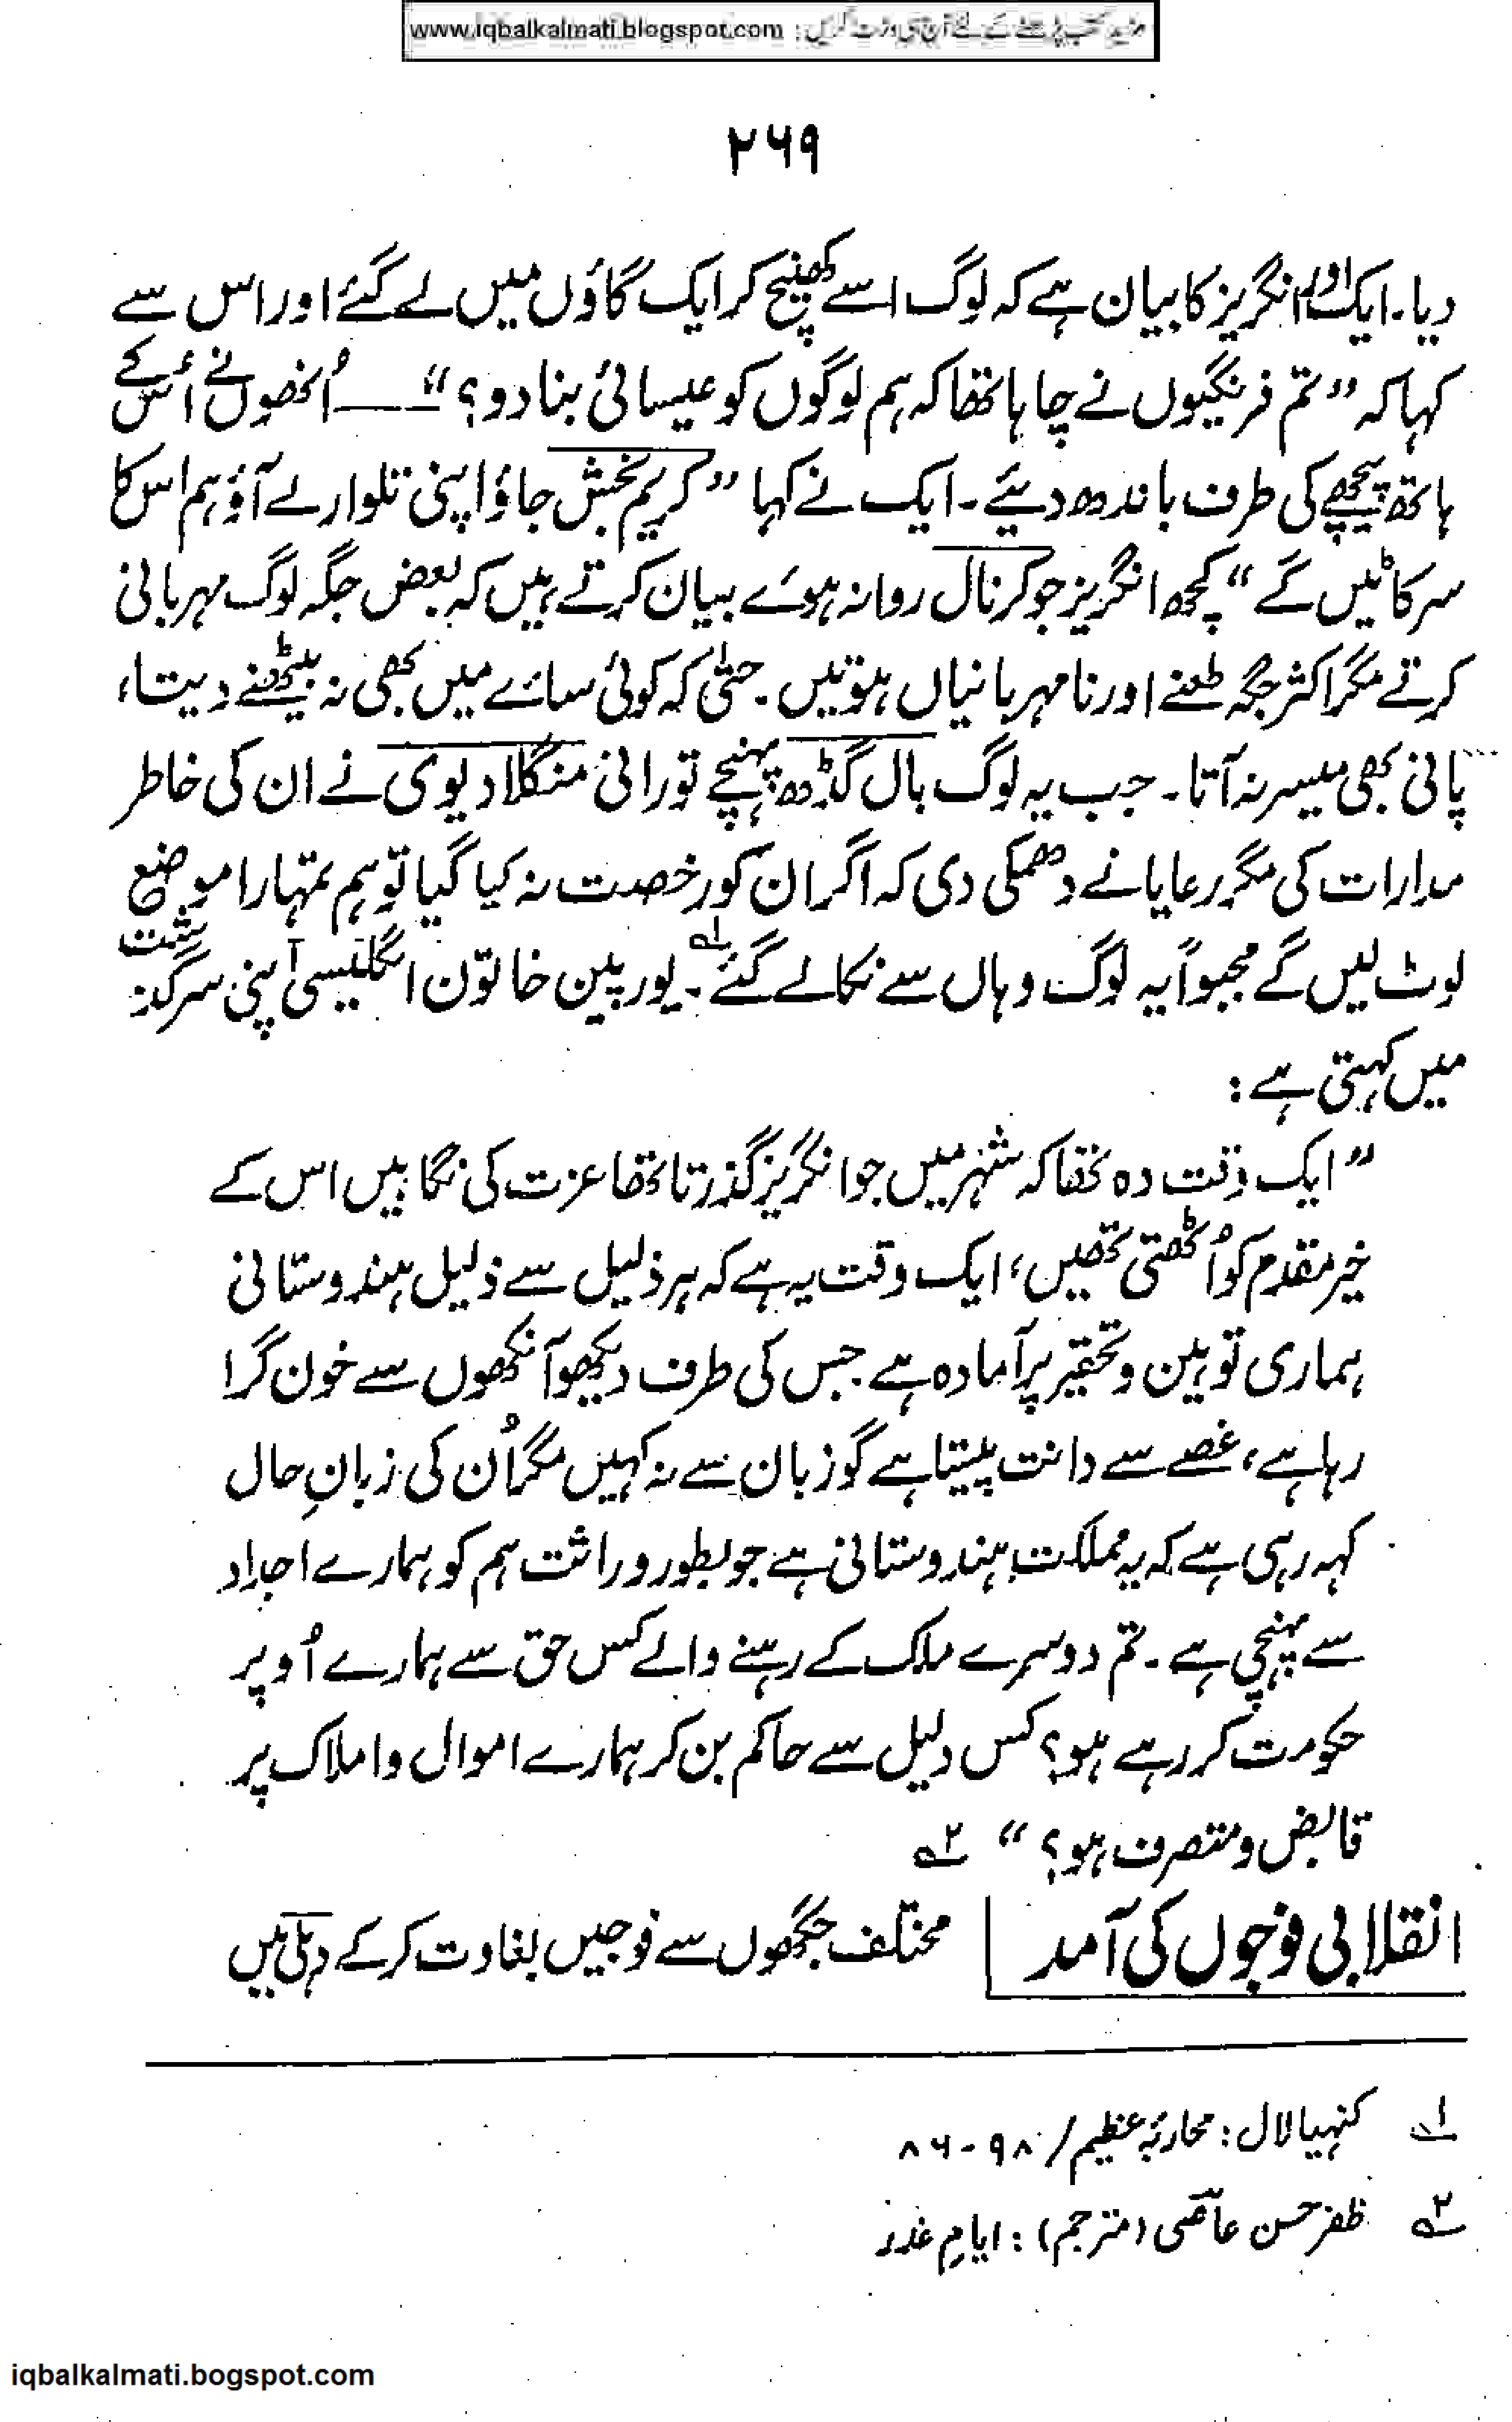 مزید کتب پڑھنے کے لئے آج ہی وزٹ کریں : www.iqbalkalmati.blogspot.com
۲۶۹
دیا۔ ایک اور انگریز کا بیان ہے کہ لوگ اسے کھینچ کر ایک گاؤں میں لے گئے اور اس سے
کہا کہ ”تم فرنگیوں نے چاہا تھا کہ ہم لوگوں کو عیسائی بنا دو؟“ ـــــ اُنھوں نے اُس کے
ہاتھ پیچھے کی طرف باندھ دیئے۔ ایک نے کہا ”کریم بخش جاؤ اپنی تلوار لے آؤ ہم اس کا
سر کاٹیں گے“ کچھ انگریز جو کرنال روانہ ہوئے بیان کرتے ہیں کہ بعض جگہ لوگ مہربانی
کرتے مگر اکثر جگہ طعنے اور نامہربانیاں ہوتیں۔ حتیٰ کہ کوئی سائے میں بھی نہ بیٹھنے دیتا،
پانی بھی میسر نہ آتا۔ جب یہ لوگ بال گڈھ پہنچے تو رانی منگلا دیوی نے ان کی خاطر
مدارات کی مگر رعایا نے دھمکی دی کہ اگر ان کو رخصت نہ کیا گیا تو ہم تمہارا موضع
لوٹ لیں گے مجبواً یہ لوگ وہاں سے نکالے گئے ؎۱۔ یورپین خاتون انگلیسی اپنی سرگذشت
میں کہتی ہے :
”ایک وقت وہ تھا کہ شہر میں جو انگریز گذرتا تھا عزت کی نگاہیں اس کے
خیر مقدم کو اُٹھتی تھیں، ایک وقت یہ ہے کہ ہر ذلیل سے ذلیل ہندوستانی
ہماری توہین و تحقیر پر آمادہ ہے جس کی طرف دیکھو آنکھوں سے خون گرا
رہا ہے، غصے سے دانت پیستا ہے گو زبان سے نہ کہیں مگر اُن کی زبانِ حال
کہہ رہی ہے کہ یہ مملکت ہندوستانی ہے جو بطور وراثت ہم کو ہمارے اجداد
سے پہنچی ہے۔ تم دوسرے ملک کے رہنے والے کس حق سے ہمارے اُوپر
حکومت کر رہے ہو؟ کس دلیل سے حاکم بن کر ہمارے اموال و املاک پر
قابض و متصرف ہو؟“ ؎۲
انقلابی فوجوں کی آمد | مختلف جگھوں سے فوجیں بغاوت کر کے دہلی میں
؎۱ کنہیا لال : محاربۂ عظیم / ۹۸-۸۶
؎۲ ظفر حسن عاصی (مترجم) : ایامِ غدر
iqbalkalmati.bogspot.com